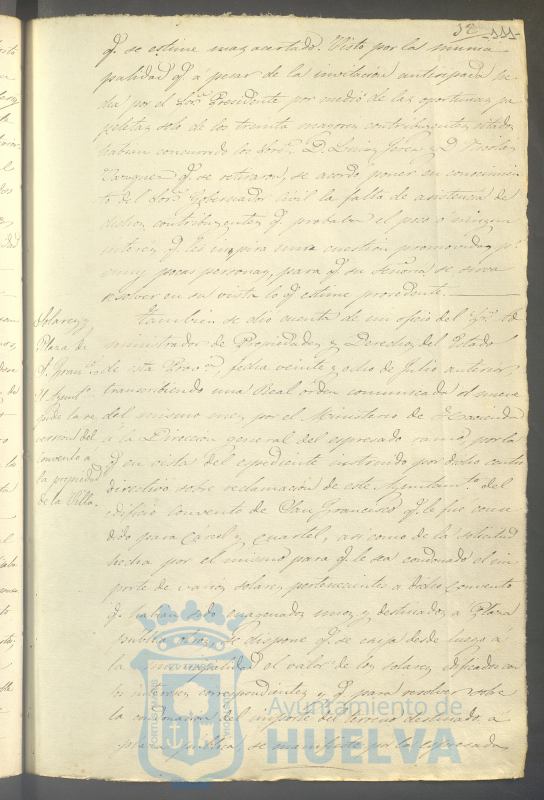 12 111
q.e se estime mas acertado. Visto por la munici
palidad q.e á pesar de la invitacion anticipada he
cha por el Sor. Presidente por medio de las oportunas pa
peletas solo de los treinta mayores contribuyentes citados
habian concurrido los Sores. D. Luis y D. Nicolas
Vazquez q.e se retiraron, se acordó poner en conocimien
to del Sor. Gobernador Civil la falta de asistencia de
dichos contribuyentes q.e probaba el poco ó ningun
interes q.e les inspira una cuestion promovida p.r
muy pocas personas, para q.e su Señoria se sirva
resolver en su vista lo q.e estime procedente.
Tambien se dió cuenta de un oficio del Sor. Ad
ministrador de Propiedades y Derechos del Estado
de esta Prov.a fecha veinte y ocho de Julio anterior
transcribiendo una Real orden comunicada el nueve
del mismo mes por el Ministerio de Hacienda
á la Direccion general del espresado ramo por la
q.e en vista del espediente instruido por dicho centro
directivo sobre reclamacion de este Ayuntam.to del
edificio convento de San Francisco q.e le fue conce
dido para Cárcel y cuartel, asi como de la solicitud
hecha por el mismo para q.e le sea condonado el im
porte de varios solares pertenecientes á dicho Convento
q.e habian sido enagenados unos y destinados á Plaza
publica otros, se dispone q.e se exija desde luego á
la municipalidad el valor de los solares edificados con
los intereses correspondientes y q.e para resolver sobre
la condonacion del importe del terreno destinado á
plaza publica, se manifieste por la espresada
Solares y
Plaza de
S. Fran.co
El Ayunt.o
pide la re
version del
convento á
la propiedad
de la Villa.
Ayuntamiento de
HUELVA